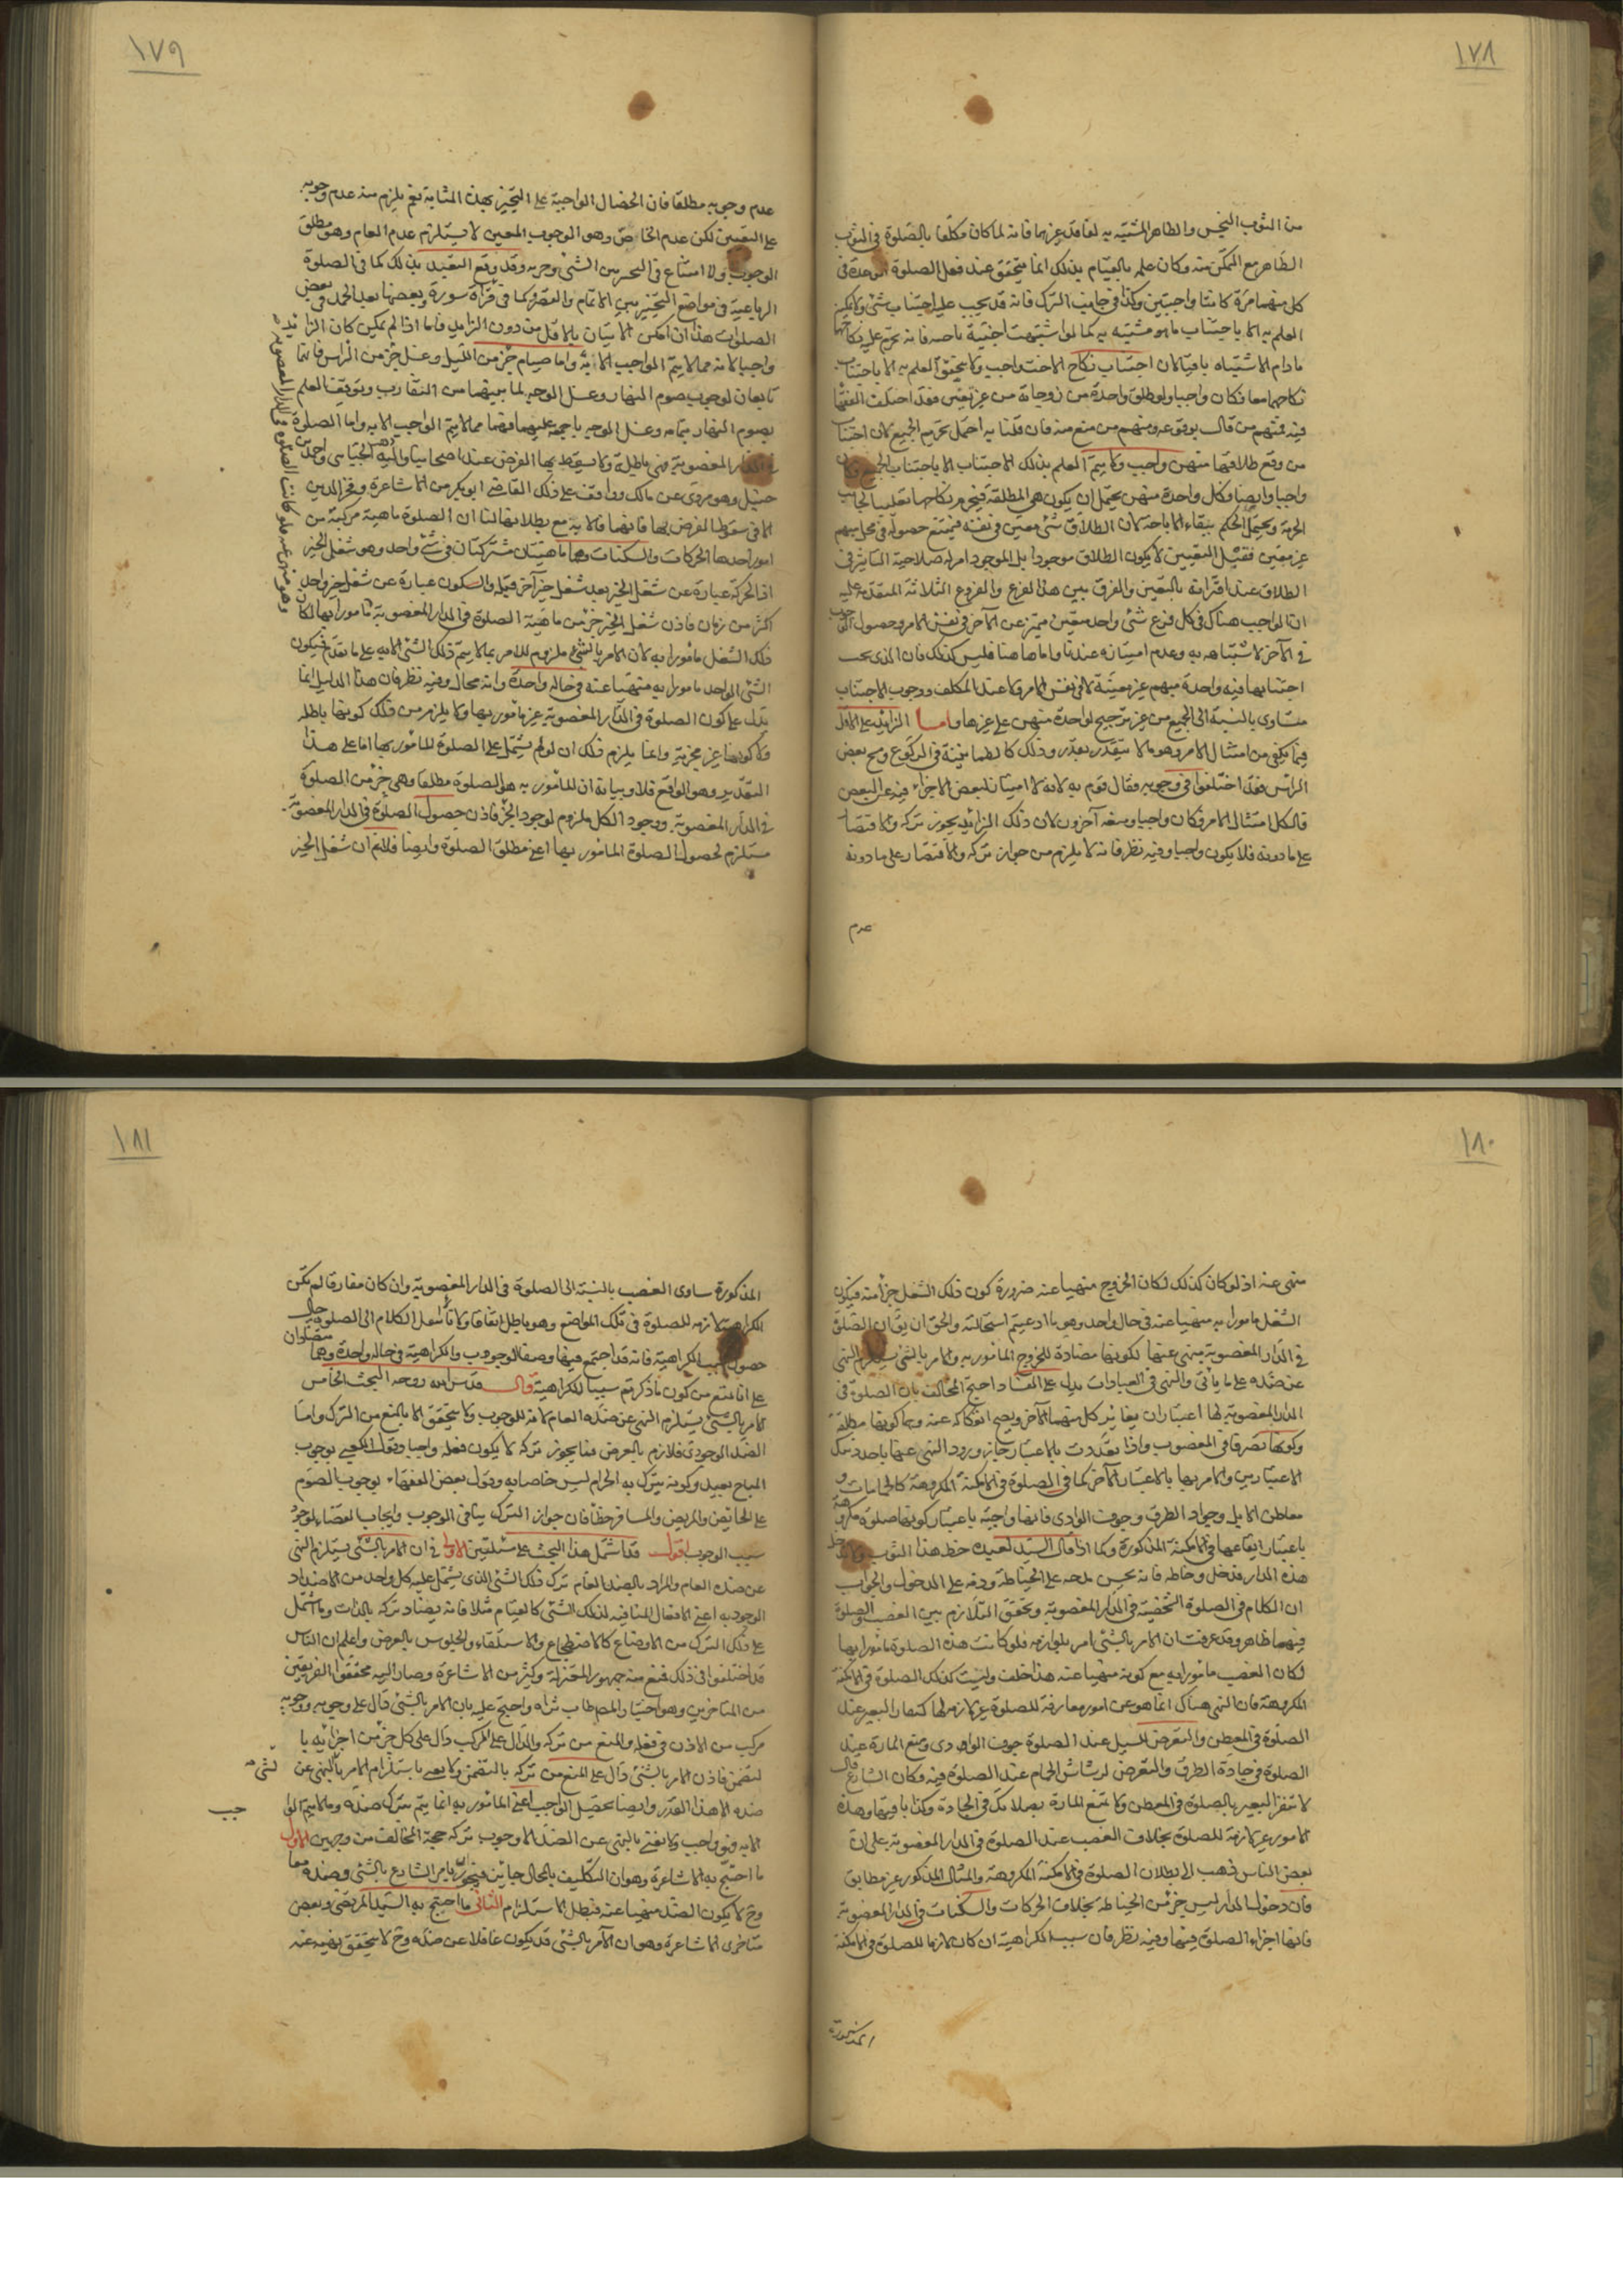 ١٧٨
من الثوب النجس والطاهر المشتبه به لفاقد غيرهما فانه لما كان مكلفا بالصلوة في الثوب
الطاهر مع التمكن منه وكان علمه بالقيام بذلك انما يتحقق عند فعل الصلوة الواحدة في
كل منهما مرة كانتا واجبتين وكذا في جانب الترك فانه قد يجب عليه اجتناب شئ ولا يمكن
العلم به الا باجتناب ما هو مشتبه به كما لو اشتبهت اجنبية باخته فانه يحرم عليه نكاحهما
ما دام الاشتباه باقيا لان اجتناب نكاح الاخت واجب ولا يتحقق العلم به الا باجتناب
نكاحهما معا فكان واجبا ولو طلق واحدة من زوجاته من غير تعيين فقد اختلف الفقهاء
فيه فمنهم من قال بوقوعه ومنهم من منع منه فان قلنا به احتمل تحريم الجميع لان اجتناب
من وقع طلاقها منهن واجب ولا يتم العلم بذلك الاجتناب الا باجتناب الجميع فكان
واجبا وايضا فكل واحدة منهن يحتمل ان يكون هي المطلقة فيحرم نكاحها تغليبا لجانب
الحرمة ويحتمل الحكم ببقاء الاباحة لان الطلاق شئ معين في نفسه فيمتنع حصوله في محل مبهم
غير معين فقبل التعيين لا يكون الطلاق موجودا بل الموجود امر له صلاحية التاثير في
الطلاق عند اقترانه بالتعيين والفرق بين هذا الفرع والفروع الثلاثة المتقدمة عليه
ان الواجب هناك في كل فرع شئ واحد معين متميز عن الآخر في نفس الامر وحصول الوجوب
في الآخر لاشتباهه به وعدم امتيازه عندنا واما هاهنا فليس كذلك فان الذي يجب
اجتنابها فيه واحدة مبهم غير معينة لا في نفس الامر ولا عند المكلف ووجوب الاجتناب
متساوى بالنسبة الى الجميع من غير ترجيح لواحدة منهن على غيرها واما الزائد على الاقل
فيما يكفي من امتثال الامر وهو ما لا يتقدر بقدر وذلك كالطمانينة في الركوع ومسح بعض
الراس فقد اختلفوا في وجوبه فقال قوم به لانه لا امتياز لبعض الاجزاء فيه عن البعض
فالكل امتثال الامر فكان واجبا ومنعه آخرون لان ذلك الزائد يجوز تركه والاقتصار
على ما دونه فلا يكون واجبا وفيه نظر فانه لا يلزم من جواز تركه والاقتصار على ما دونه
عدم
١٧٩
عدم وجوبه مطلقا فان الخصال الواجبة على التخيير بهذه المثابة نعم يلزم منه عدم وجوبه
على التعيين لكن عدم الخاص وهو الوجوب المعين لا يستلزم عدم العام وهو مطلق
الوجوب ولا امتناع في التخيير بين الشئ وجزءه وقد وقع التعبد بذلك كما في الصلوة
الرباعية في مواضع التخيير بين الاتمام والقصر وكما في قراءة سورة وبعضها بعد الحمد في بعض
الصلوات هذا ان امكن الاتيان بالاقل من دون الزايد فاما اذا لم يمكن كان الزايد
واجبا لانه مما لا يتم الواجب الا به واما صيام جزء من الليل وغسل جزء من الراس فانهما
تابعان لوجوب صوم النهار وغسل الوجه لما بينهما من التقارب وتوقف العلم
بصوم النهار بتمامه وغسل الوجه باجمعه عليهما فهما مما لا يتم الواجب الا به واما الصلوة
في الدار المغصوبة فهي باطلة ولا يسقط بها الفرض عند اصحابنا واليه ذهب الجبائي واحمد بن
حنبل وهو مروى عن مالك ووافقه على ذلك القاضي ابو بكر من الاشاعرة وفخر الدين
الا في سقوط الفرض بها فانهما قالا به مع بطلانها لنا ان الصلوة ماهية مركبة من
امور احدها الحركات والسكنات وهما ماهيتان مشتركتان في شئ واحد وهو شغل الحيز
اذ الحركة عبارة عن شغل الحيز بعد شغل حيز آخر قبله والسكون عبارة عن شغل حيز واحد
اكثر من زمان فاذن شغل الحيز جزء من ماهية الصلوة في الدار المغصوبة مامورا بها لكان
ذلك الشغل مامورا به لان الامر بالشئ ملزوم للامر بما لا يتم ذلك الشئ الا به على ما تقدم فيكون
الشئ الواحد مامورا به منهيا عنه في حالة واحدة وانه محال وفيه نظر فان هذا الدليل انما
يدل على كون الصلوة في الدار المغصوبة غير مامور بها ولا يلزم من ذلك كونها باطلة
ولا كونها غير مجزية وانما يلزم ذلك ان لو لم يشتمل على الصلوة المامور بها اما على هذا
التقدير وهو الواقع فلا وبيانه ان المامور به هو الصلوة مطلقا وهي جزء من الصلوة
في الدار المغصوبة ووجود الكل ملزوم لوجود الجزء فاذن حصول الصلوة في الدار المغصوبة
مستلزم لحصول الصلوة المامور بها اعني مطلق الصلوة وايضا فلانم ان شغل الحيز
وهو منهى عنه فلو كانت الصلوة في الدار المغصوبة
١٨٠
منهى عنه اذ لو كان كذلك لكان الخروج منهيا عنه ضرورة كون ذلك الشغل جزأ منه فيكون
الشغل مامورا به منهيا عنه في حال واحد وهو ما ادعيتم استحالته والحق ان يقال ان الصلوة
في الدار المغصوبة منهى عنها لكونها مضادة للخروج المامور به والامر بالشئ يستلزم النهى
عن ضده على ما ياتى والنهى في العبادات يدل على الفساد احتج المخالف بان الصلوة في
الدار المغصوبة لها اعتباران يغاير كل منهما الآخر ويصح انفكاكه عنه وهما كونها مطلقة
وكونها تصرفا في المغصوب واذا تعددت بالاعتبار جاز ورود النهى عنها باحد ذينك
الاعتبارين والامر بها بالاعتبار الآخر كما في الصلوة في الامكنة المكروهة كالحمامات و
معاطن الابل وجواد الطرق وجوف الوادى فانها واجبة باعتبار كونها صلوة مكروهة
باعتبار ايقاعها في الامكنة المذكورة وكما اذا قال السيد لعبده خط هذا الثوب ولا تدخل
هذه الدار فدخل وخاطه فانه يحسن مدحه على الخياطة وذمه على الدخول والجواب
ان الكلام في الصلوة الشخصية في الدار المغصوبة وتحقق التلازم بين الغصب والصلوة
فيهما ظاهر وقد عرفت ان الامر بالشئ امر بلوازمه فلو كانت هذه الصلوة مامورا بها
لكان الغصب مامورا به مع كونه منهيا عنه هذا خلف وليست كذلك الصلوة في الامكنة
المكروهة فان النهى هناك انما هو عن امور مفارقة للصلوة غير لازمة لها كنفار البعير عند
الصلوة في المعطن والتعرض للسيل عند الصلوة جوف الوادى ومنع المارة عند
الصلوة في جادة الطرق والتعرض لرشاش الحمام عند الصلوة فيه وكان الشارع قال
لا تنفر البعير بالصلوة في المعطن ولا تمنع المارة بصلاتك في الجادة وكذا باقيها وهذه
الامور غير لازمة للصلوة بخلاف الغصب عند الصلوة في الدار المغصوبة على ان
بعض الناس ذهب الى بطلان الصلوة في الامكنة المكروهة والمثال المذكور غير مطابق
فان دخول الدار ليس جزء من الخياطة بخلاف الحركات والسكنات في الدار المغصوبة
فانها اجزاء الصلوة فيها وفيه نظر فان سبب الكراهية ان كان لازما للصلوة في الامكنة
المذكورة
١٨١
المذكورة ساوى الغصب بالنسبة الى الصلوة في الدار المغصوبة وان كان مفارقا لم تكن
الكراهية لازمة للصلوة في تلك المواضع وهو باطل اتفاقا ولانا ننقل الكلام الى الصلوة حال
حصول سبب الكراهية فانه قد اجتمع فيها وصفا الوجوب والكراهية في حالة واحدة وهما متضادان
على انا نمنع من كون ما ذكرتم سببا للكراهية قال قدس الله روحه البحث الخامس
الامر بالشئ يستلزم النهى عن ضده العام لانه للوجوب ولا يتحقق الا بالمنع من الترك واما
الضد الوجودى فلازم بالعرض فما يجوز تركه لا يكون فعله واجبا وقول الكعبى بوجوب
المباح بعيد وكونه يترك به الحرام ليس خاصا به وقول بعض الفقهاء بوجوب الصوم
على الحائض والمريض والمسافر خطأ فان جواز الترك ينافى الوجوب وايجاب القضاء لوجود
سبب الوجوب اقول قد اشتمل هذا البحث على مسئلتين الاولى في ان الامر بالشئ يستلزم النهى
عن ضده العام والمراد بالضد العام ترك ذلك الشئ الذى يشتمل عليه كل واحد من الاضداد
الوجودية اعنى الافعال المنافية لذلك الشئ كالقيام مثلا فانه يضاد تركه بالذات وما اشتمل
على ذلك الترك من الاوضاع كالاضطجاع والاستلقاء والجلوس بالعرض واعلم ان الناس
قد اختلفوا في ذلك فمنع منه جمهور المعتزلة وكثير من الاشاعرة وصار اليه محققوا الفريقين
من المتاخرين وهو اختيار المص طاب ثراه واحتج عليه بان الامر بالشئ دال على وجوبه ووجوبه
مركب من الاذن في فعله والمنع من تركه والدال على المركب دال على كل جزء من اجزائه با
لتضمن فاذن الامر بالشئ دال على المنع من تركه بالتضمن ولا يعنى باستلزام الامر بالشئ النهى عن
ضده الا هذا القدر وايضا تحصيل الواجب اعنى المامور به انما يتم بترك ضده وما لا يتم الوا
جب
الا به فهو واجب ولا يعنى بالنهى عن الضد الا وجوب تركه حجة المخالف من وجهين الاول
ما احتج به الاشاعرة وهو ان التكليف بالمحال جايز فيجوز ان يامر الشارع بالشئ وضده معا
وح لا يكون الضد منهيا عنه فبطل الاستلزام الثانى ما احتج به السيد المرتضى وبعض
متاخرى الاشاعرة وهو ان الآمر بالشئ قد يكون غافلا عن ضده وح لا يتحقق نهيه عنه